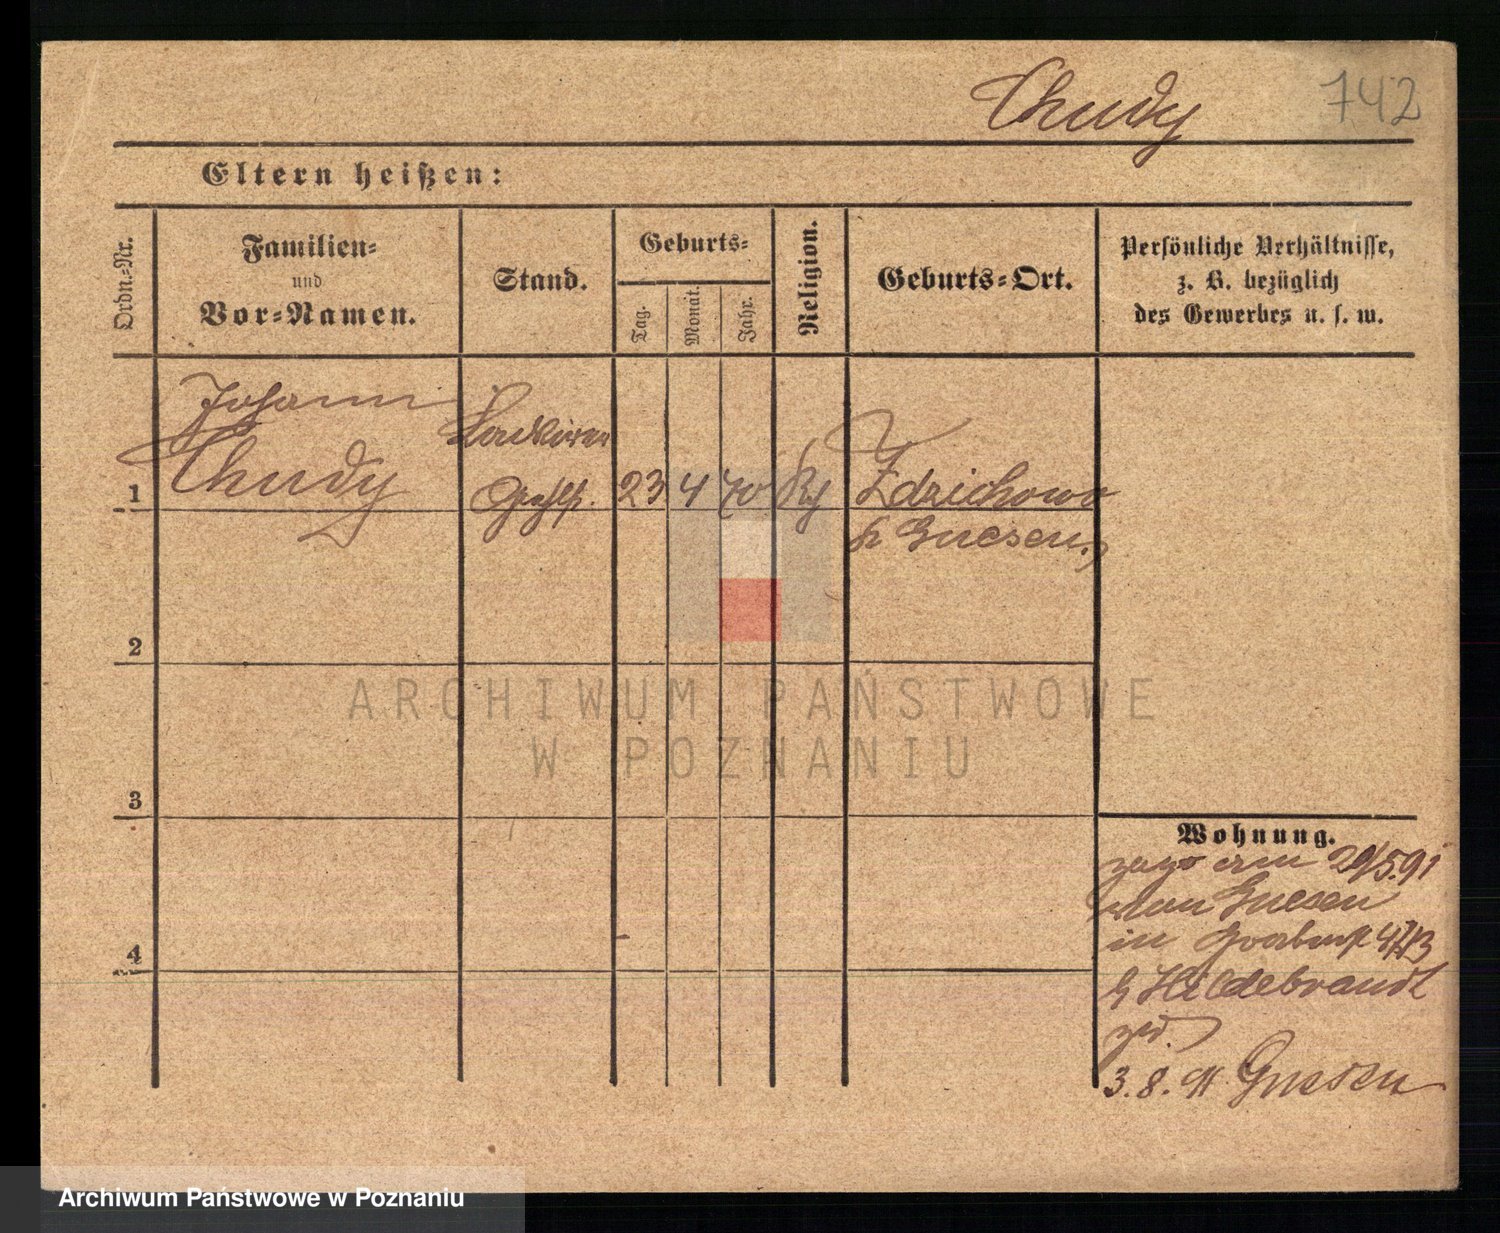 Chudy
742
Eltern heißen:
Ordn.-Nr.
Familien-
und
Vor-Namen.
Stand.
Geburts-
Tag.
Monat.
Jahr.
Religion.
Geburts-Ort.
Persönliche Verhältnisse,
z. B. bezüglich
des Gewerbes u. s. w.
Johann
Chudy
1
23
4
70
Zdzichowo
Gnesen
2
ARCHIWUM PAŃSTWOWE
W POZNANIU
3
Wohnung.
am 29/5.91
von Gnesen
in
4
Hildebrandt
3. 8. 91 Gnesen
Archiwum Państwowe w Poznaniu